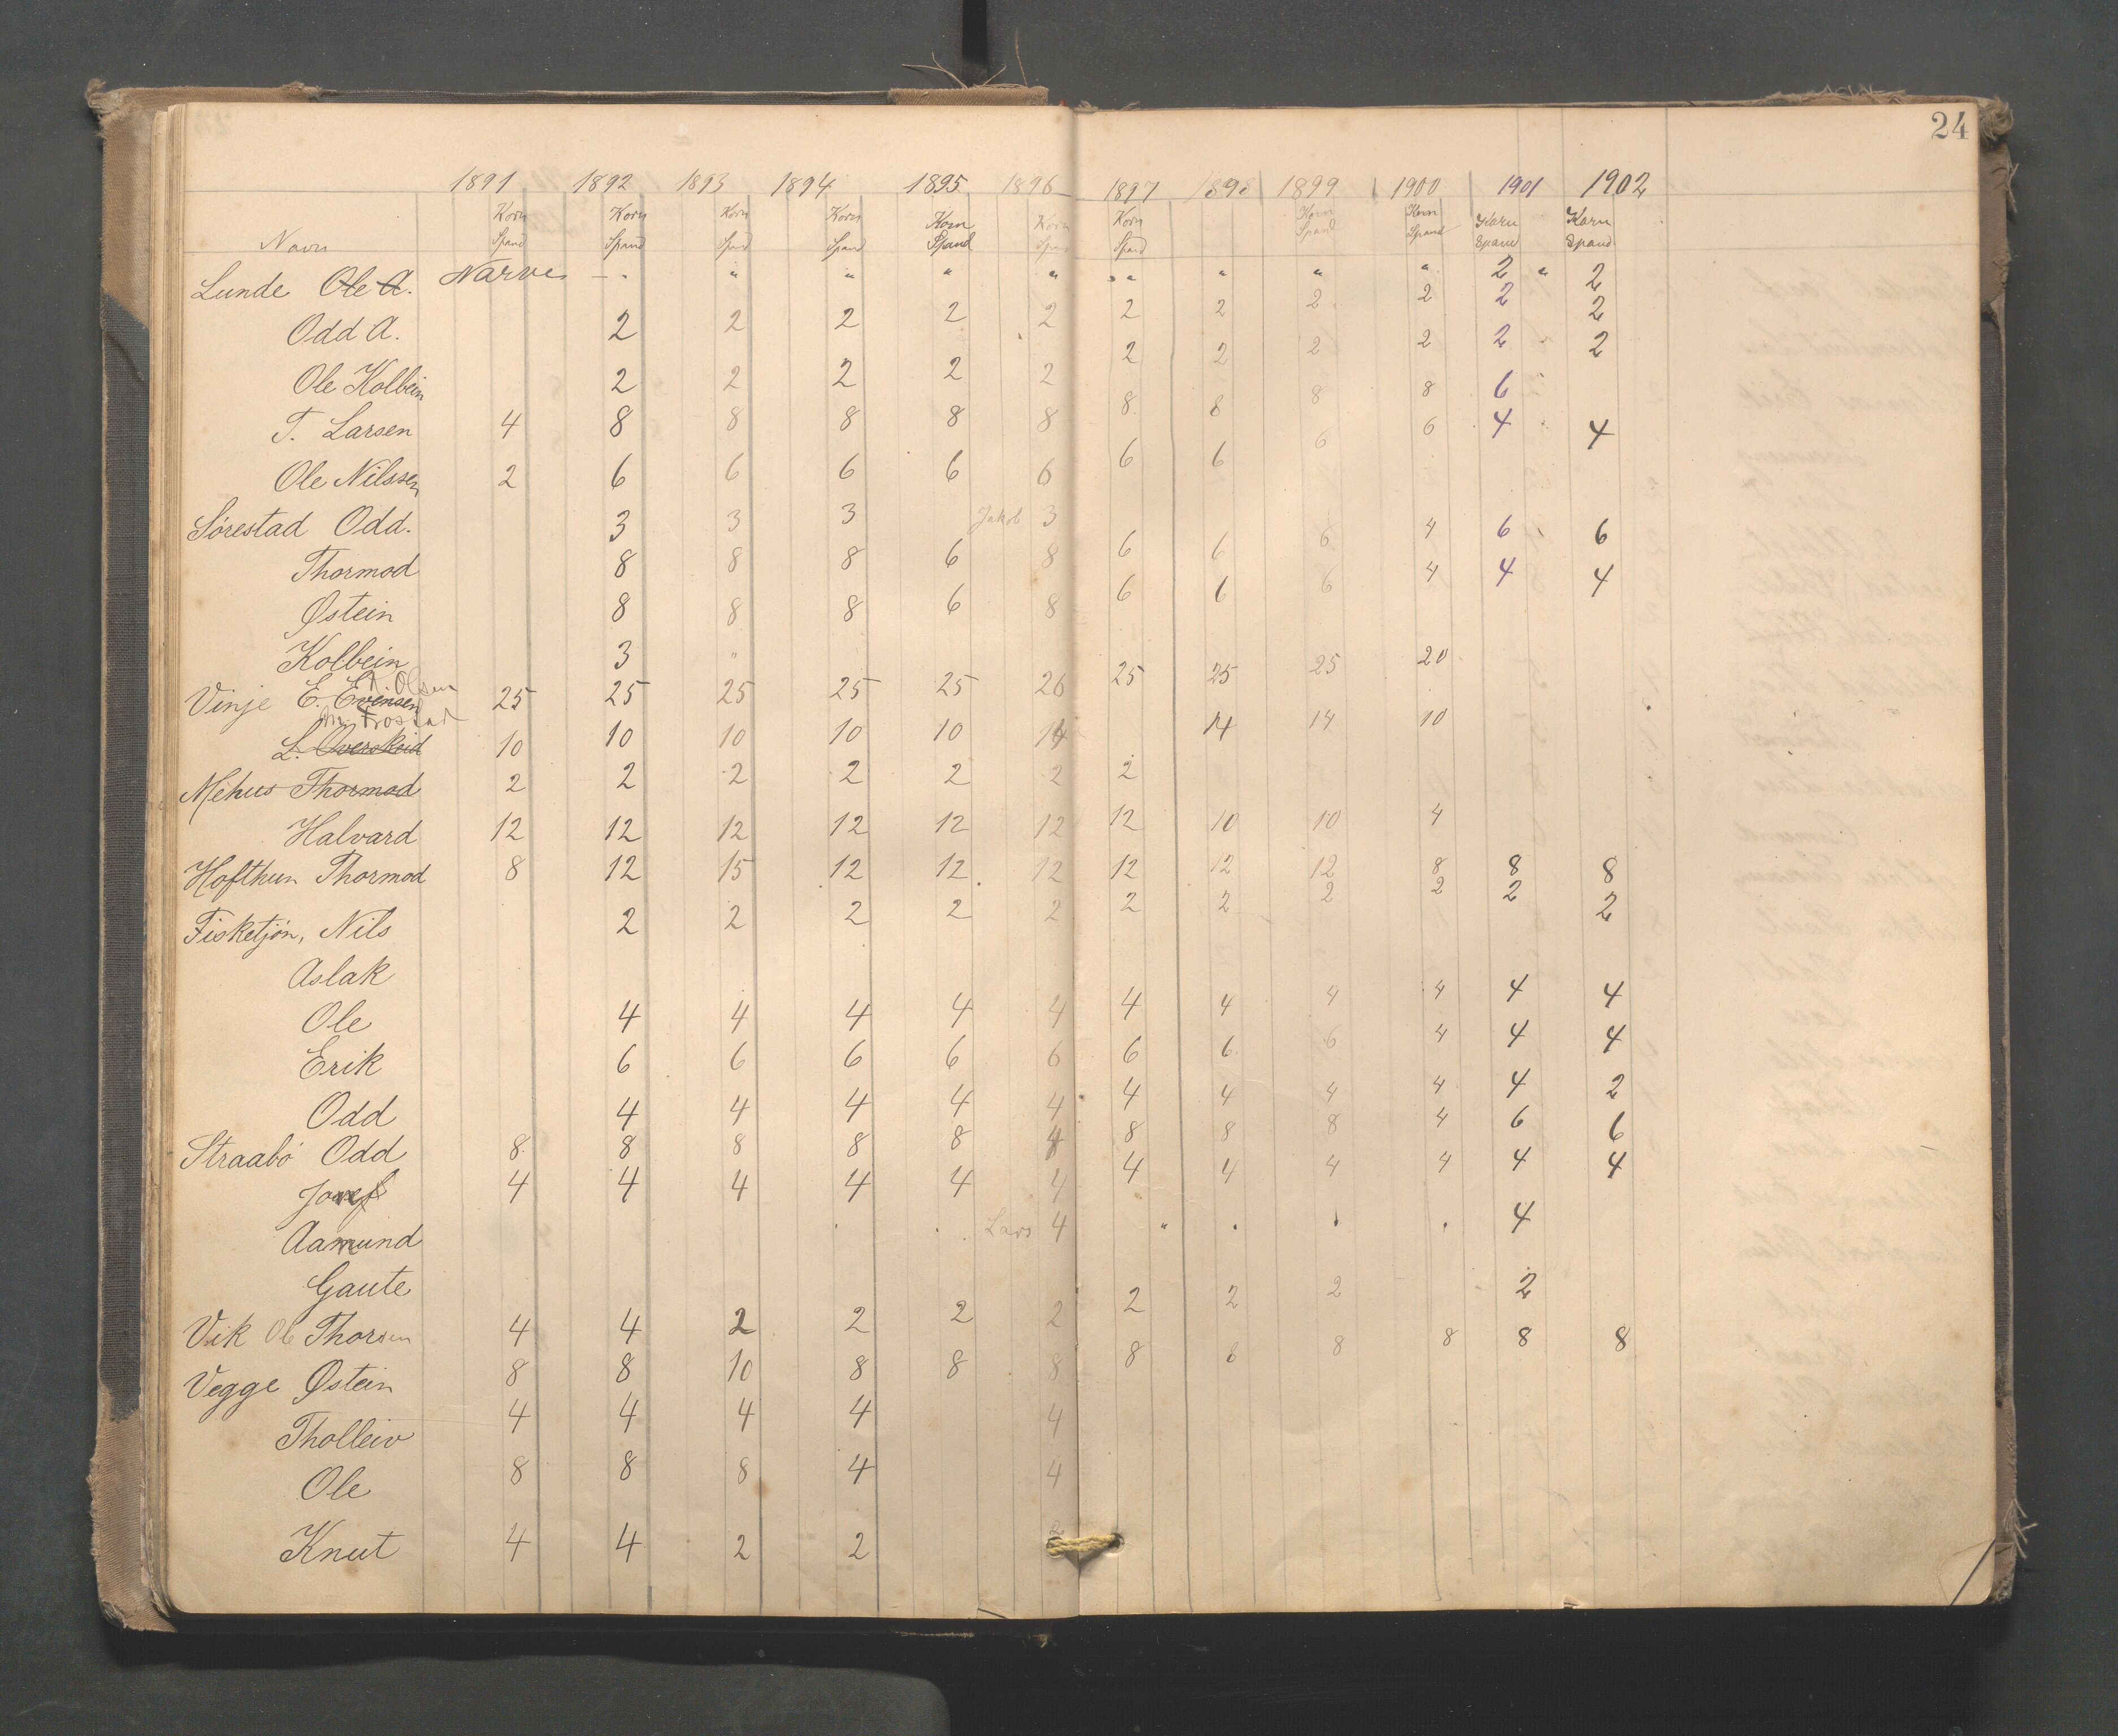 24
1891 1892 1893 1894 1895 1896 1897 1898 1899 1900 1901 1902
Korn Korn Korn Korn Korn Korn Korn Korn Korn Korn Korn
Navn Spand Spand Spand Spand Spand Spand Spand Spand Spand Spand Spand
Lunde Ole A. Narve — " " " " " " " " " 2 " 2
Odd A. 2 2 2 2 2 2 2 2 2 2 2
Ole Kolbein 2 2 2 2 2 2 2 2 2 2 2
T. Larsen 4 8 8 8 8 8 8 8 8 8 6
Ole Nilssen 2 6 6 6 6 6 6 6 6 6 4 4
Sørestad Odd. 3 3 3 Jakob 3
Thormod 8 8 8 6 8 6 6 6 4 6 6
Østein 8 8 8 6 8 6 6 6 4 4 4
Kolbein 3 "
Olsen
Vinje E. Evensen 25 25 25 25 25 26 25 25 25 20
L. Overskeid 10 10 10 10 10 14 14 14 10
Mehus Thormod 2 2 2 2 2 2 2
Halvard 12 12 12 12 12 12 12 10 10 4
Hofthun Thormod 8 12 15 12 12 12 12 12 12 8 8 8
Fisketjøn, Nils 2 2 2 2 2 2 2 2 2 2 2
Aslak
Ole 4 4 4 4 4 4 4 4 4 4 4
Erik 6 6 6 6 6 6 6 6 4 4 4
Odd 4 4 4 4 4 4 4 4 4 4 2
Straabø Odd 8 8 8 8 8 8 8 8 8 4 6 6
4 4 4 4 4 4 4 4 4 4 4 4
Aamund Lars 4 " . . . 4
Gaute
Vik Ole Thorsen 4 4 2 2 2 2 2 2 2 2
Vegge Østein 8 8 10 8 8 8 8 8 8 8 8 8
Tholleiv 4 4 4 4 4
Ole 8 8 8 4 4
Knut 4 4 2 2 2